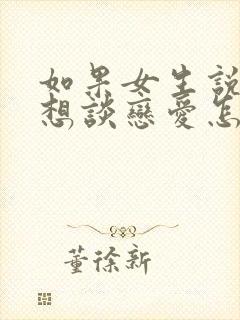 如果女生說
想談戀愛怎
董徐新